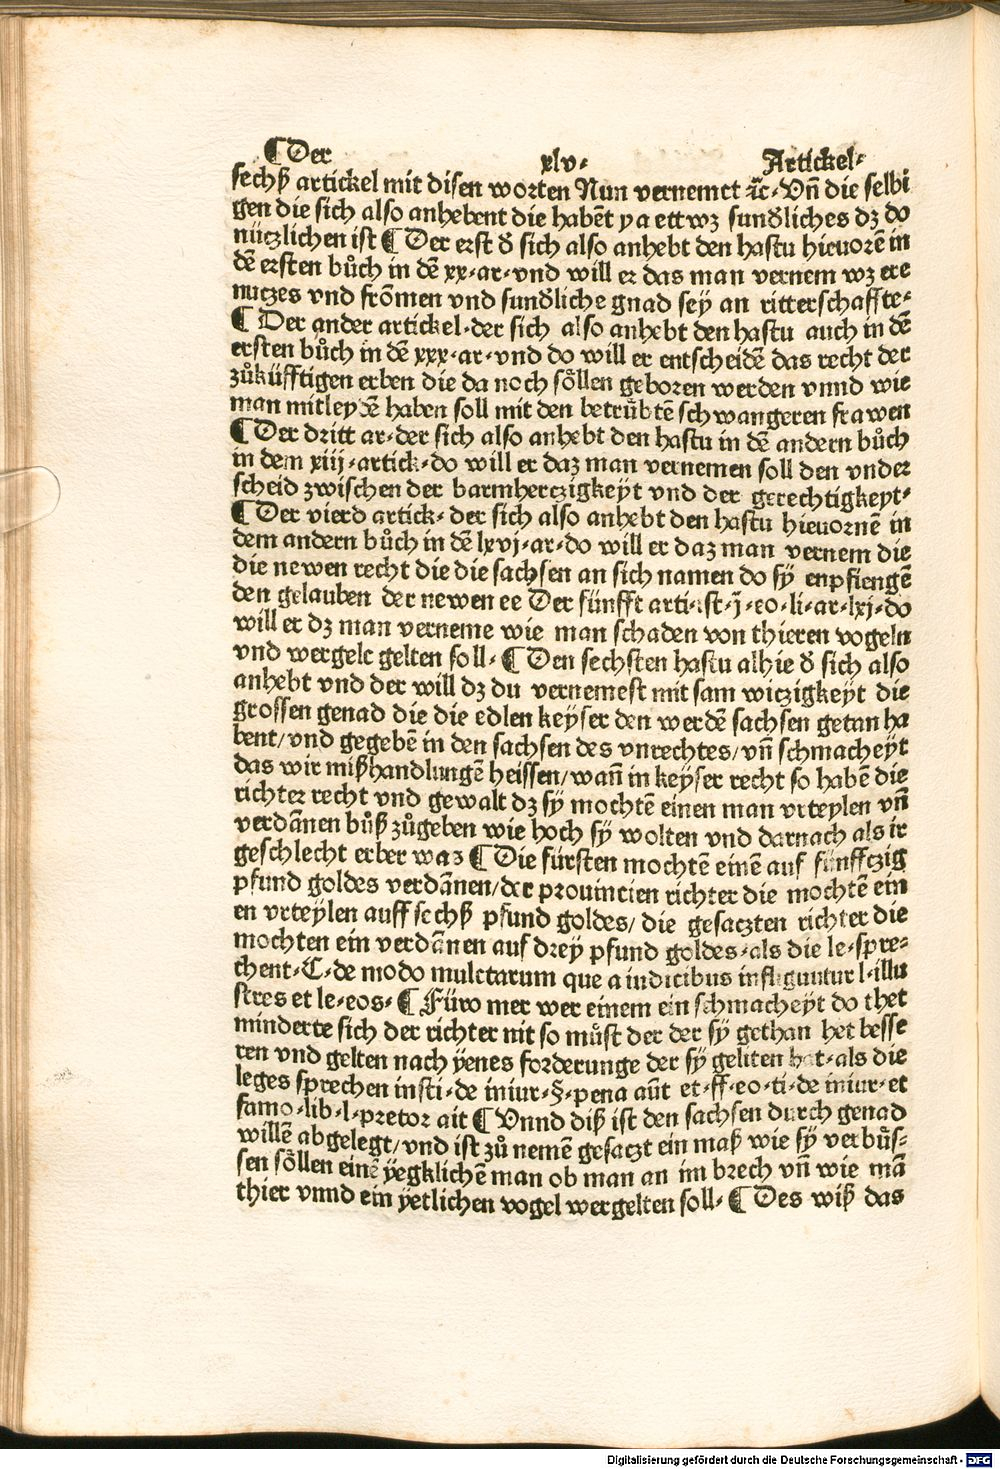 ¶ Der xlv. Artickel.
sechß artickel mit disen worten Nun vernemet ⁊c. Vn̄ die selbi
gen die sich also anhebent die habēt ya ettwz sunđliches dz do
nüczlichen ist ¶ Der erst đ sich also anhebt den hastu hieuorē in
dē ersten bůch in dē xx. ar. vnd will er das man vernem wz ere
nuczes vnd frōmen vnd sunđliche gnad sey̎ an ritterschaffte.
¶ Der ander artickel. der sich also anhebt den hastu auch in dē
ersten bůch in dē xxx. ar. vnd do will er entscheidē das recht der
zůküfftigen erben die da noch soͤllen geboren werden vnnd wie
man mitleydē haben soll mit den betruͤbtē schwangeren frawen
¶ Der dritt ar. der sich also anhebt den hastu in dē andern bůch
in dem xiij. artick. do will er daz man vernemen soll den vnder
scheid zwischen der barmherczigkey̎t vnd der gerechtigkeyt.
¶ Der vierd artick. der sich also anhebt den hastu hieuornē in
dem andern bůch in dē lxvj. ar. do will er daz man vernem die
die newen recht die die sachsen an sich namen do sy̎ enpfiengē
den gelauben der newen ee Der fünfft arti. ist. j̄. eo. li. ar. lxj. do
will er dz man verneme wie man schaden von thieren vogeln
vnd wergelt gelten soll. ¶ Den sechsten hastu alhie đ sich also
anhebt vnd der will dz du vernemest mit sam wiczigkey̎t die
grossen genad die die edlen key̎ser den werdē sachsen getan ha
bent/ vnd gegebē in den sachsen des vnrechtes/ vn̄ schmachey̎t
das wir mißhandlungē heissen/ wan̄ in key̎ser recht so habē die
richter recht vnd gewalt dz sy̎ mochtē einen man vrteylen vn̄
verdānen bůß zůgeben wie hoch sy̎ wolten vnd darnach als ir
geschlecht erber waz ¶ Die fürsten mochtē einē auf fünffczig
pfund goldes verdānen/ der prouincien richter die mochtē ein
en vrtey̎len auff sechß pfund goldes/ die gesaczten richter die
mochten ein verdānen auf drey̎ pfund goldes. als die le. spre.
chent. C. de modo mulctarum que a iudicibus infliguntur l. illu
stres et le. eos. ¶ Füro mer wer einem ein schmachey̎t do thet
minderte sich der richter nit so můst der der sy̎ gethan het besse
ren vnd gelten nach y̎enes forderunge der sy̎ geliten hat. als die
leges sprechen insti. de iniur. §. pena aūt et. ff. eo. ti. de iniur. et
famo. lib. l. pretor ait ¶ Vnnd diß ist den sachsen durch genad
willē abgelegt/ vnd ist zů nemē gesaczt ein maß wie sy̎ verbuͤs.
sen soͤllen einē y̎egklichē man ob man an im brech vn̄ wie mā
thier vnnd ein y̎etlichen vogel wergelten soll. ¶ Des wiß das
Digitalisierung gefördert durch die Deutsche Forschungsgemeinschaft - DFG